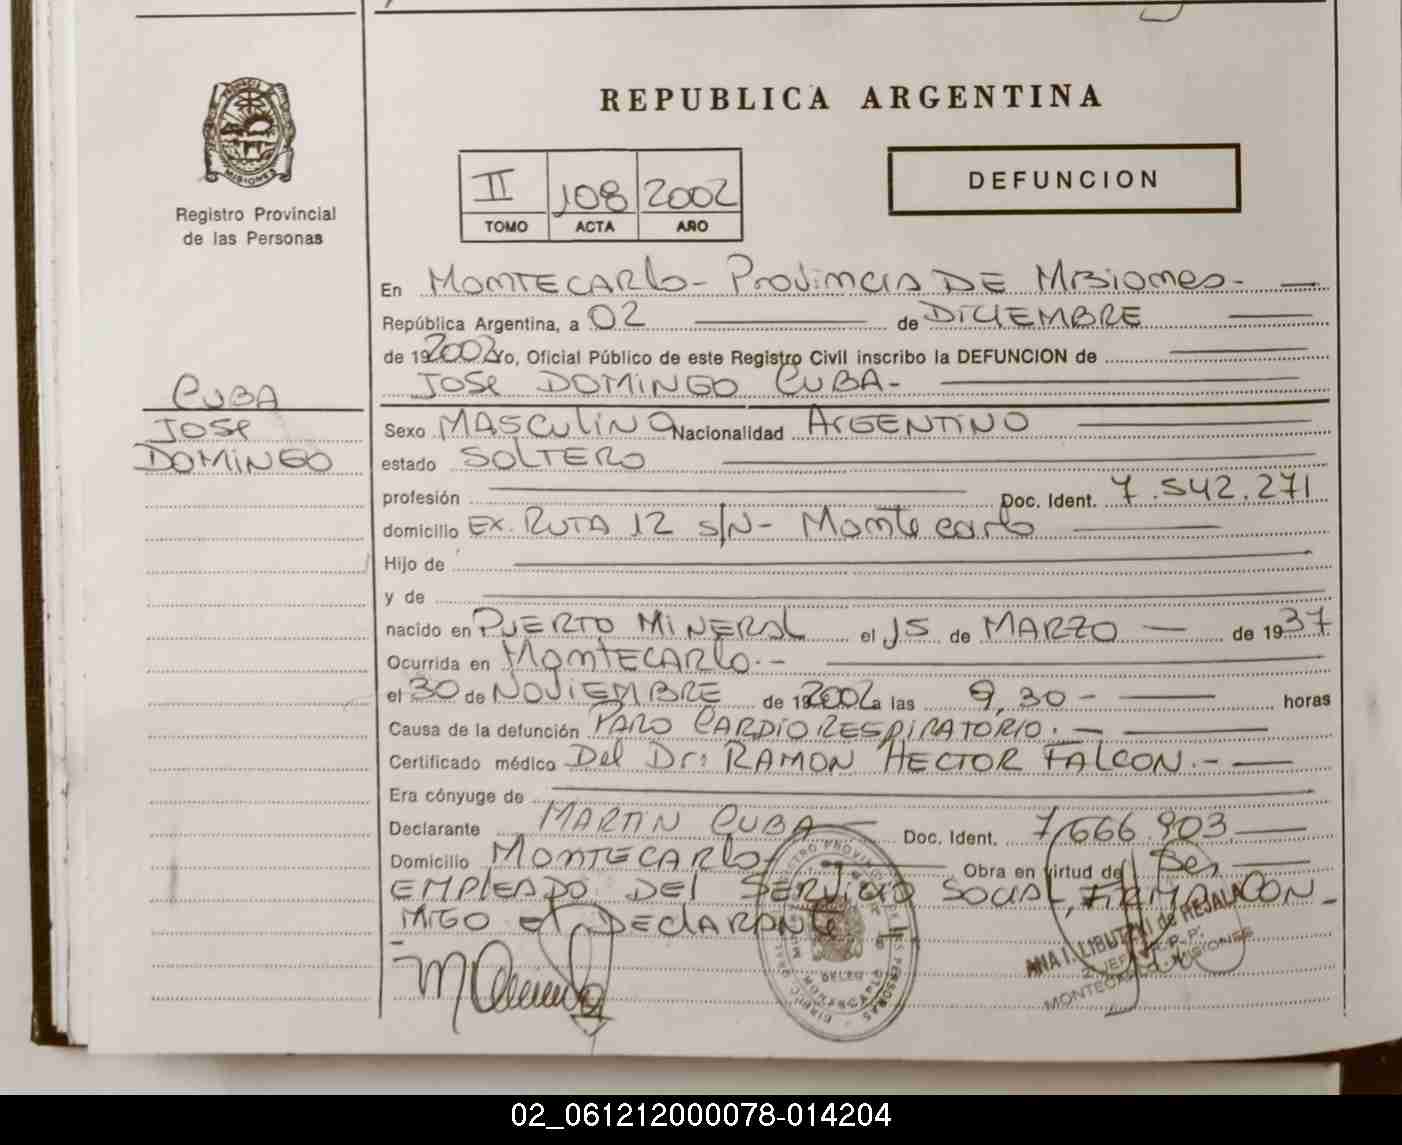 MISIONES
Registro Provincial
de las Personas
REPUBLICA ARGENTINA
II 108 2002
TOMO ACTA AÑO
DEFUNCION
En MONTECARLO - PROVINCIA DE MISIONES -
República Argentina, a 02 de DICIEMBRE
de 19 2002 Yo, Oficial Público de este Registro Civil inscribo la DEFUNCION de
JOSE DOMINGO CUBA -
CUBA
JOSE
DOMINGO
Sexo MASCULINO Nacionalidad ARGENTINO
estado SOLTERO
profesión Doc. Ident. 7.542.271
domicilio EX. RUTA 12 S/N - Montecarlo
Hijo de
y de
nacido en PUERTO MINERAL el 15 de MARZO de 1937
Ocurrida en MONTECARLO.-
el 30 de NOVIEMBRE de 19 2002 a las 9,30 - horas
Causa de la defunción PARO CARDIORESPIRATORIO.-
Certificado médico Del Dr: RAMON HECTOR FALCON.-
Era cónyuge de
Declarante MARTIN CUBA Doc. Ident. 7.666.903
Domicilio MONTECARLO - Obra en virtud de Ser
EMPLEADO DEL SERVICIO SOCIAL, FIRMA CON-
MIGO EL DECLARANTE
ANA I. LIBUTZKI de REJALA
MONTECARLO - MISIONES
02_061212000078-014204